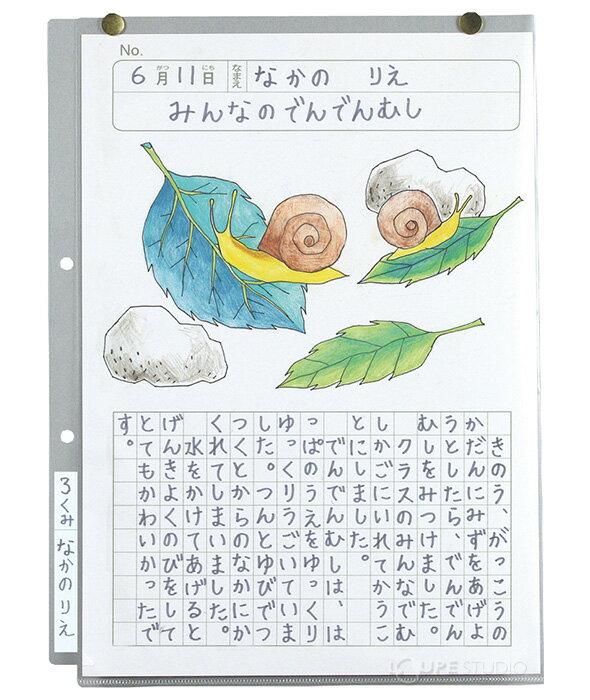 No.
6月11日 なまえ なかの りえ
がつ にち
みんなのでんでんむし
きのう、がっこうの
かだんにみずをあげよ
うとしたら、でんでん
むしをみつけました。
クラスのみんなでむ
しかごにいれてかうこ
とにしました。
でんでんむしは、は
っぱのうえをゆっくり
ゆっくりうごいていま
した。つんとゆびでつ
つくとからのなかにか
くれてしまいます。
水をかけてあげると
げんきよくのびをして
とてもかわいかったで
す。
3くみ なかの りえ
UPE STUDIO